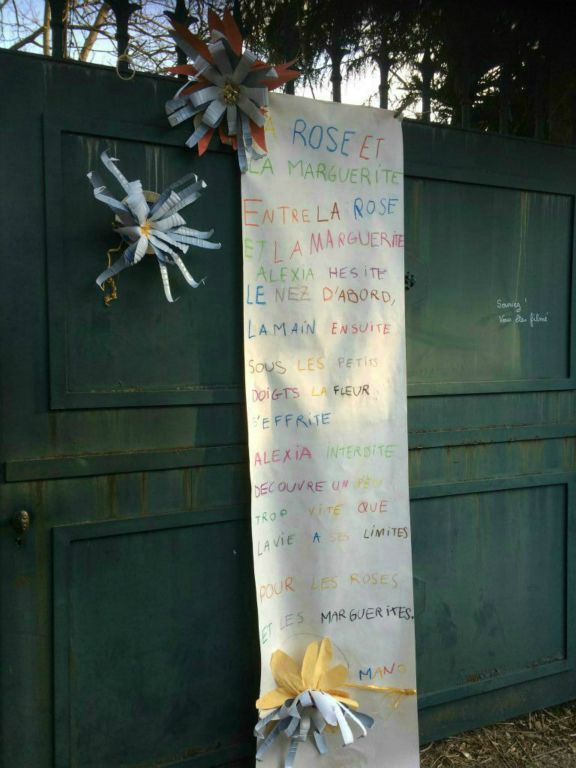 LA ROSE ET
LA MARGUERITE
ENTRE LA ROSE
ET LA MARGUERITE
ALEXIA HESITE
LE NEZ D'ABORD,
LA MAIN ENSUITE
SOUS LES PETITS
DOIGTS LA FLEUR
S'EFFRITE
ALEXIA INTERDITE
DECOUVRE UN PEU
TROP VITE QUE
LA VIE A SES LIMITES
POUR LES ROSES
ET LES MARGUERITES.
MANO
Souriez !
Vous êtes filmé